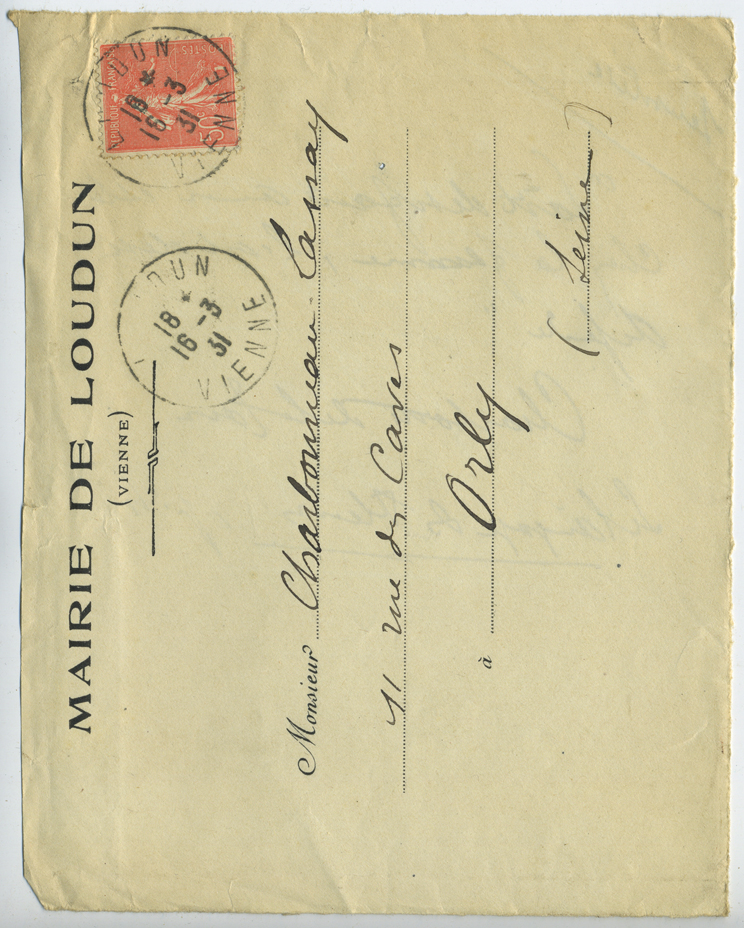 MAIRIE DE LOUDUN
(VIENNE)
RÉPUBLIQUE FRANÇAISE
POSTES
50c
LOUDUN
18 *
16 -3
31
VIENNE
LOUDUN
18 *
16 -3
31
VIENNE
Monsieur Charbonneau-Lassay
11 rue des Caves
à Orly
(Seine)